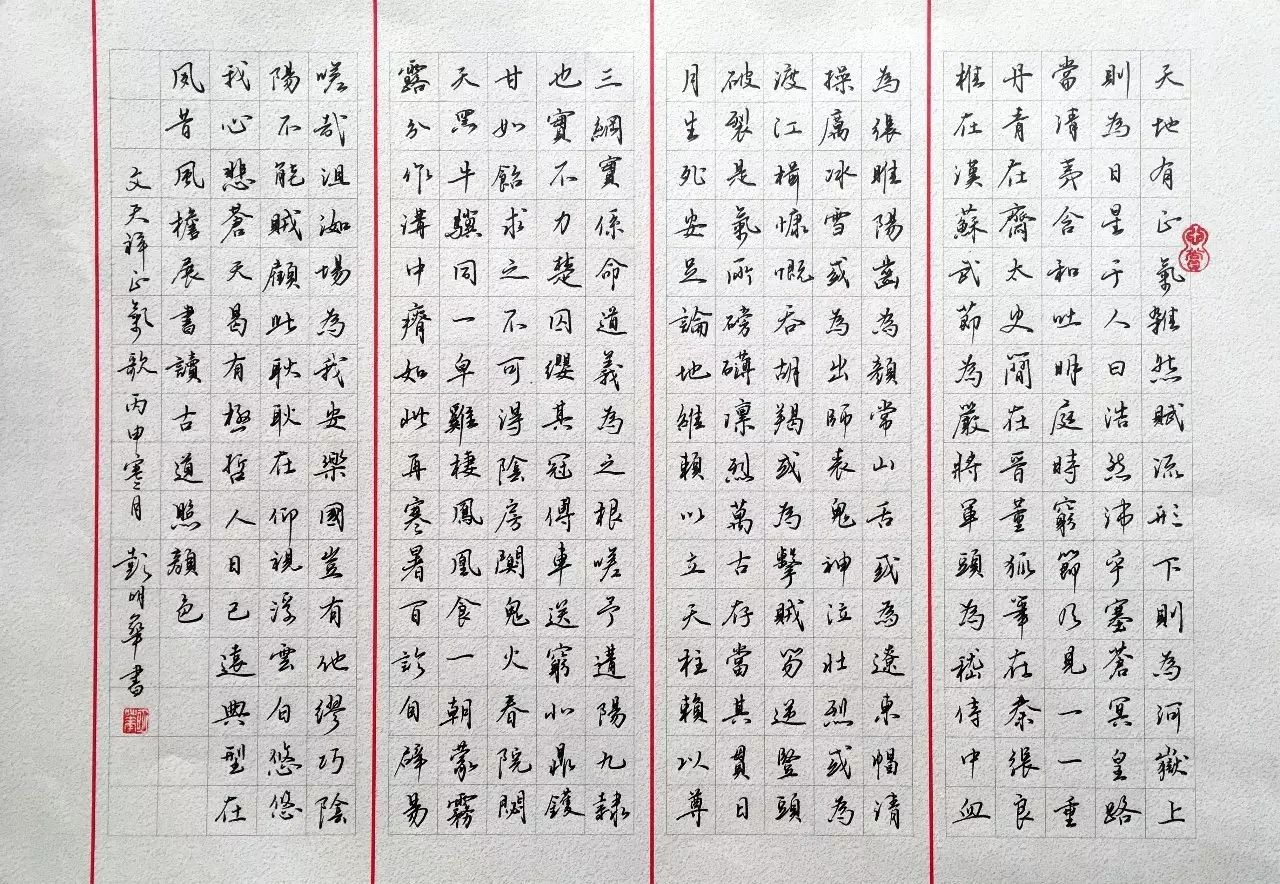 天地有正氣雜然賦流形下則為河嶽上
則為日星于人曰浩然沛乎塞蒼冥皇路
當清夷含和吐明庭時窮節乃見一一垂
丹青在齊太史簡在晉董狐筆在秦張良
椎在漢蘇武節為嚴將軍頭為嵇侍中血
為張睢陽齒為顏常山舌或為遼東帽清
操厲冰雪或為出師表鬼神泣壯烈或為
渡江楫慷慨吞胡羯或為擊賊笏逆豎頭
破裂是氣所磅礴凜烈萬古存當其貫日
月生死安足論地維賴以立天柱賴以尊
三綱實係命道義為之根嗟予遘陽九隸
也實不力楚囚纓其冠傳車送窮北鼎鑊
甘如飴求之不可得陰房闃鬼火春院閟
天黑牛驥同一皁雞棲鳳凰食一朝蒙霧
露分作溝中瘠如此再寒暑百沴自辟易
嗟哉沮洳場為我安樂國豈有他繆巧陰
陽不能賊顧此耿耿在仰視浮雲白悠悠
我心悲蒼天曷有極哲人日已遠典型在
夙昔風檐展書讀古道照顏色
文天祥正氣歌丙申寒月 彭明華書